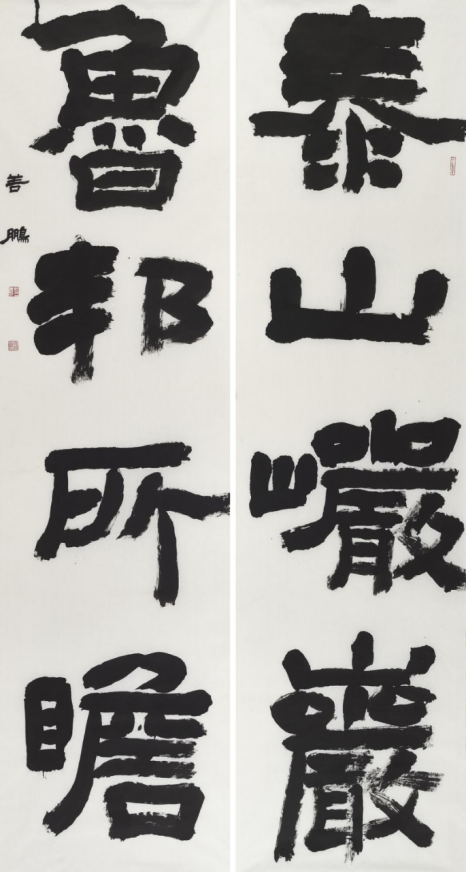 泰山巗巖
魯邦所瞻
善鵬